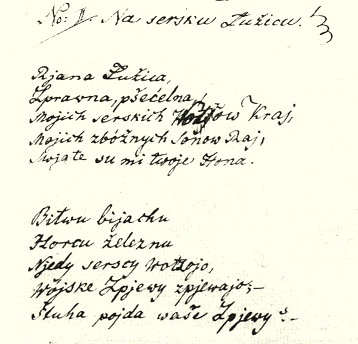 No: I. Na sersku Łužicu.
Rjana Łužica,
Zprawna, pšećelna,
Mojich serskich Kraj,
Mojich zbóžnych Sonow Raj,
Swjate su mi twoje Hona.
Bitwu bijachu
Horcu železnu
Njedy serscy Wotzojo,
Wójske Zpjewy zpjewajo;—
Štuha pojda waše Zpjewy?—